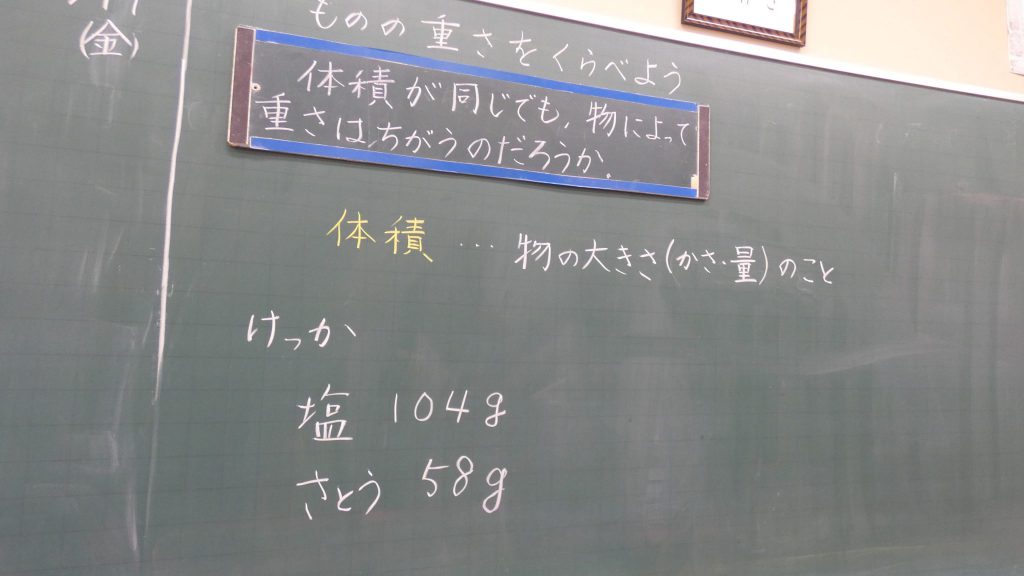 (金)
ものの重さをくらべよう
体積が同じでも、物によって
重さは、ちがうのだろうか。
体積 … 物の大きさ(かさ・量)のこと
けっか
塩 104g
さとう 58g